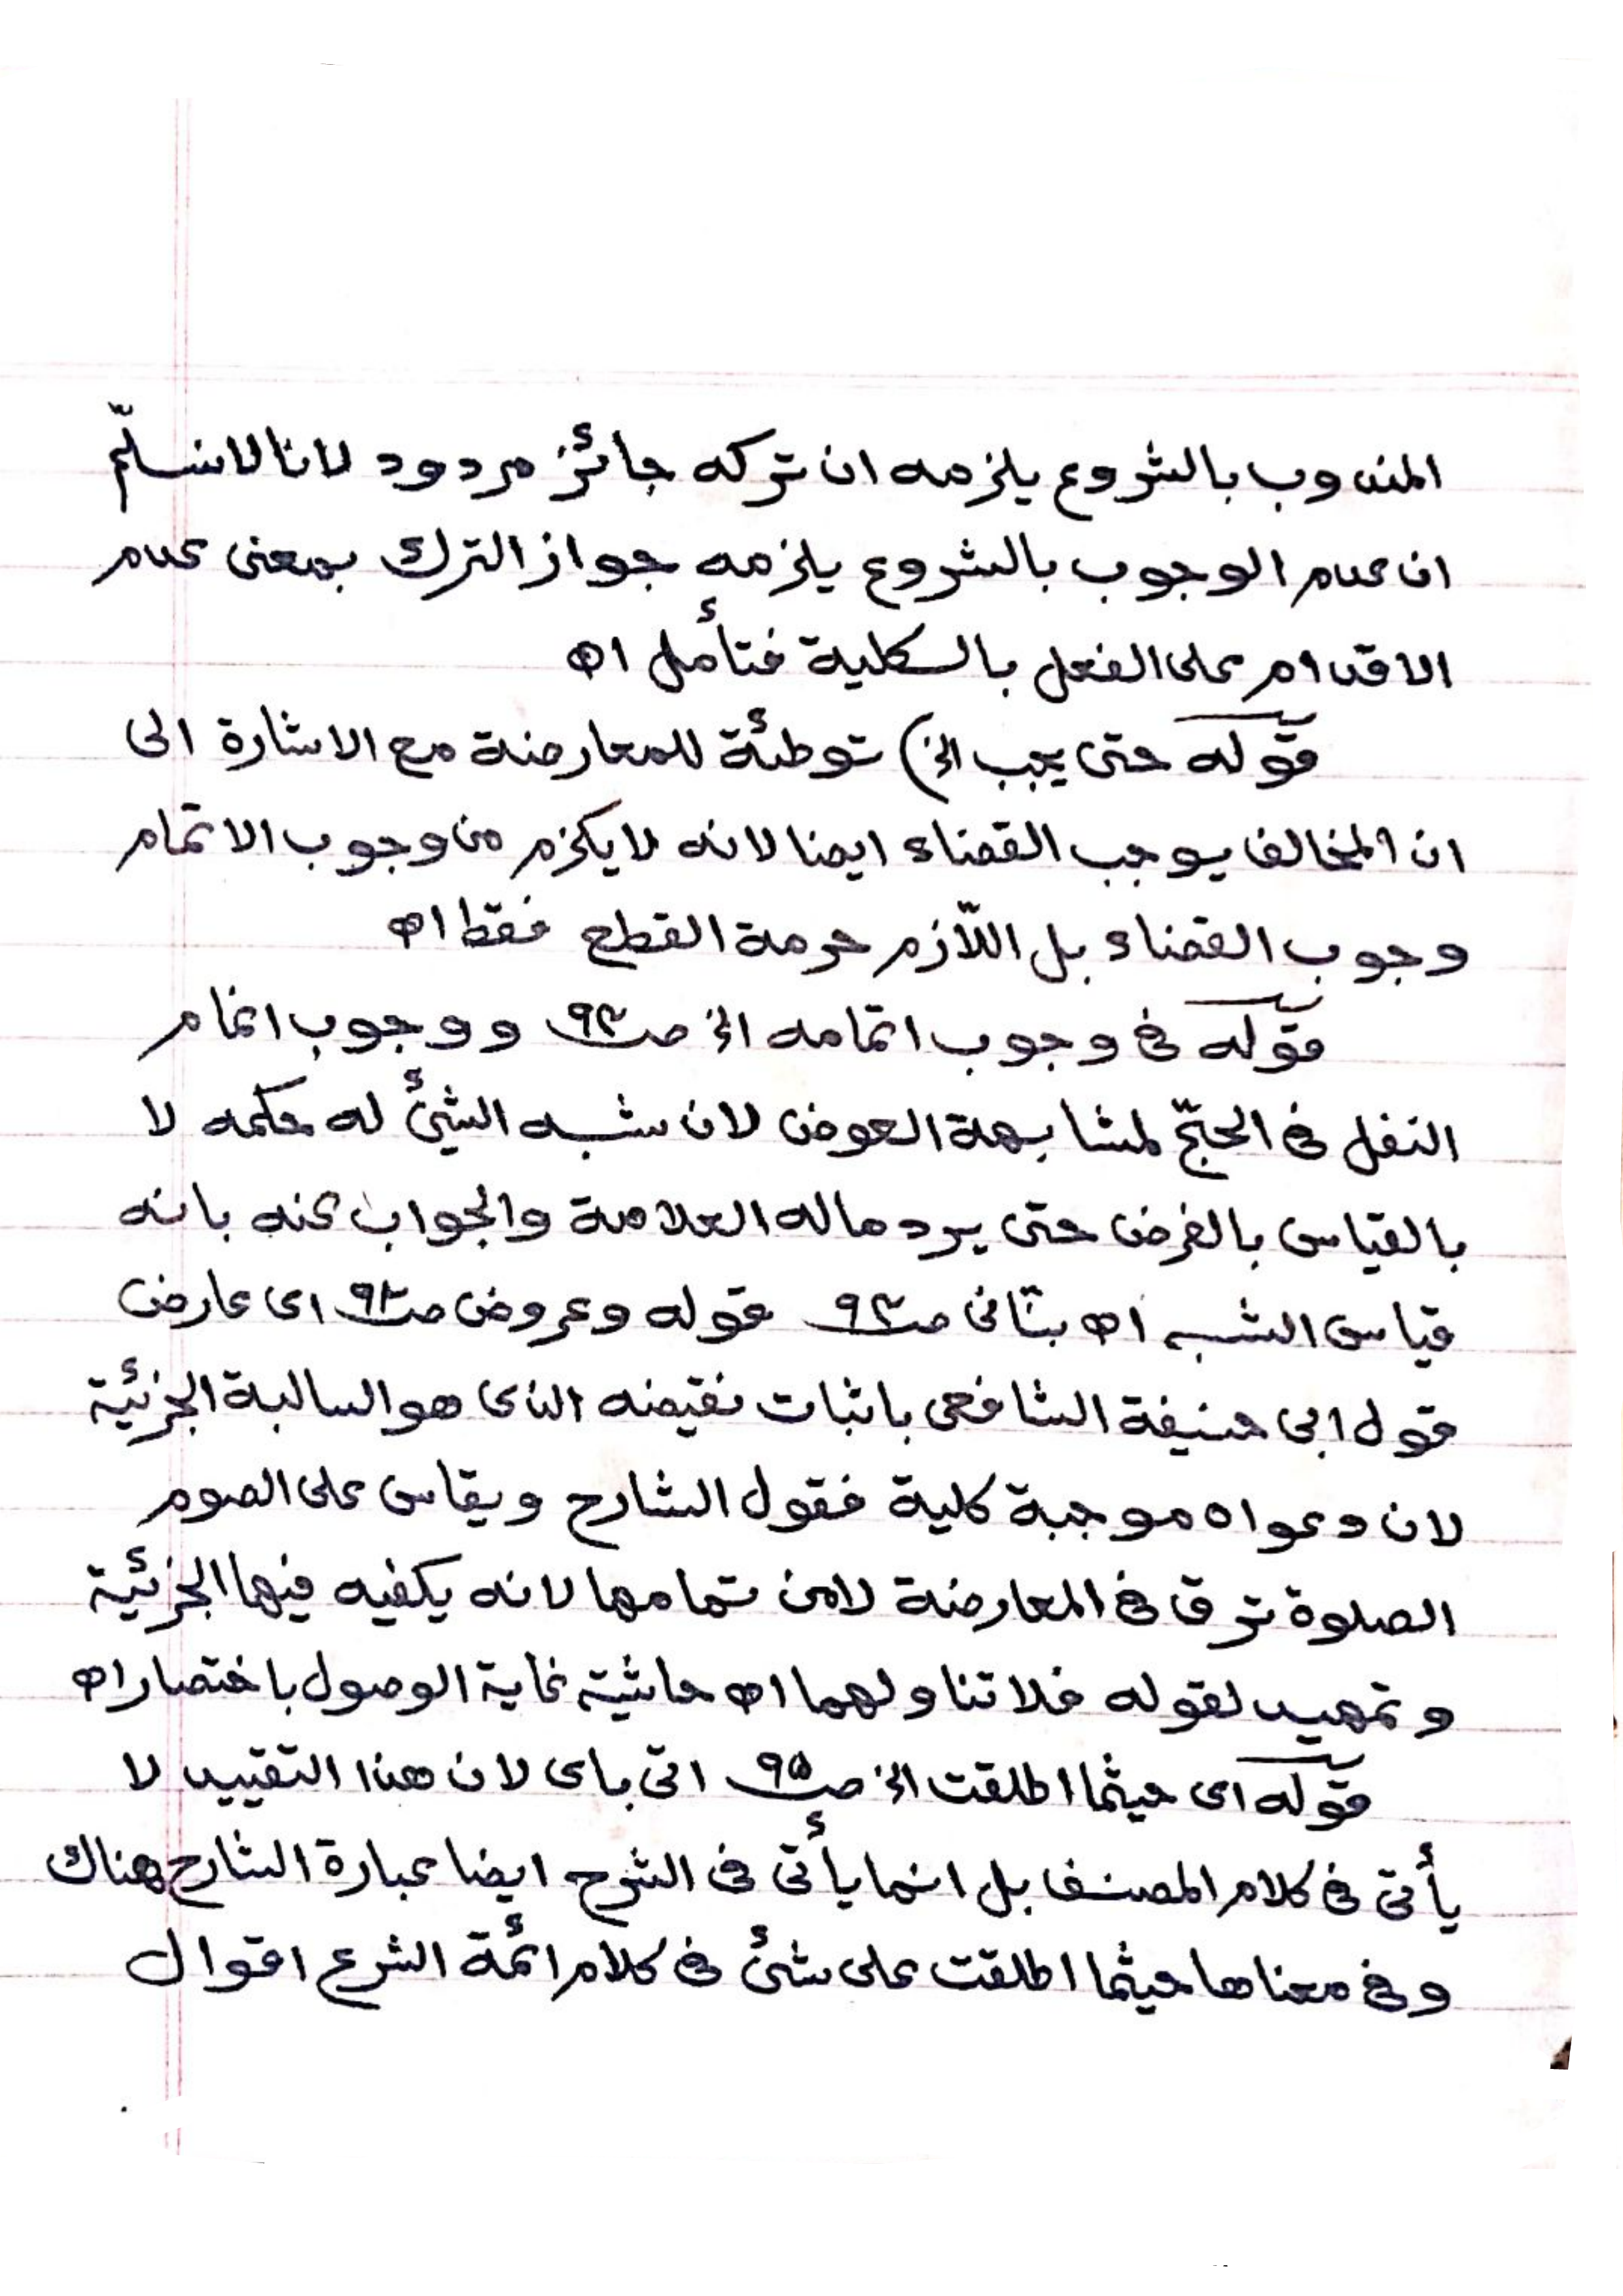 المندوب بالشروع يلزمه ان تركه جائز مردود لانا لا نسلّم
ان عدم الوجوب بالشروع يلزمه جواز الترك بمعنى عدم
الاقدام على الفعل بالكلية فتأمل اه
قوله حتى يجب الخ) توطئة للمعارضة مع الاشارة الى
ان المخالف يوجب القضاء ايضا لانه لا يلزم من وجوب الاتمام
وجوب القضاء بل اللّازم حرمة القطع فقط اه
قوله فى وجوب اتمامه الخ صـ٩٣ ووجوب اتمام
النفل فى الحجّ لمشابهة العوض لان شبه الشيئ له حكمه لا
بالقياس بالفرض حتى يرد ماله العلامة والجواب عنه بانه
قياس الشبه اه بنّانى صـ٩٣ قوله وعروض صـ٩٣ اى عارض
قول ابى حنيفة الشافعى باثبات نقيضه الذى هو السالبة الجزئية
لان دعواه موجبة كلية فقول الشارح ويقاس على الصوم
الصلوة ترق فى المعارضة لا من تمامها لانه يكفيه فيها الجزئية
وتمهيد لقوله فلا تناولهما اه حاشية غاية الوصول باختصار اه
قوله اى حيثما اطلقت الخ صـ٩٥ اتى باى لان هذا التقييد لا
يأتى فى كلام المصنف بل انما يأتى فى الشرح ايضا عبارة الشارح هناك
وفى معناها حيثما اطلقت على شئ فى كلام ائمة الشرع اقوال